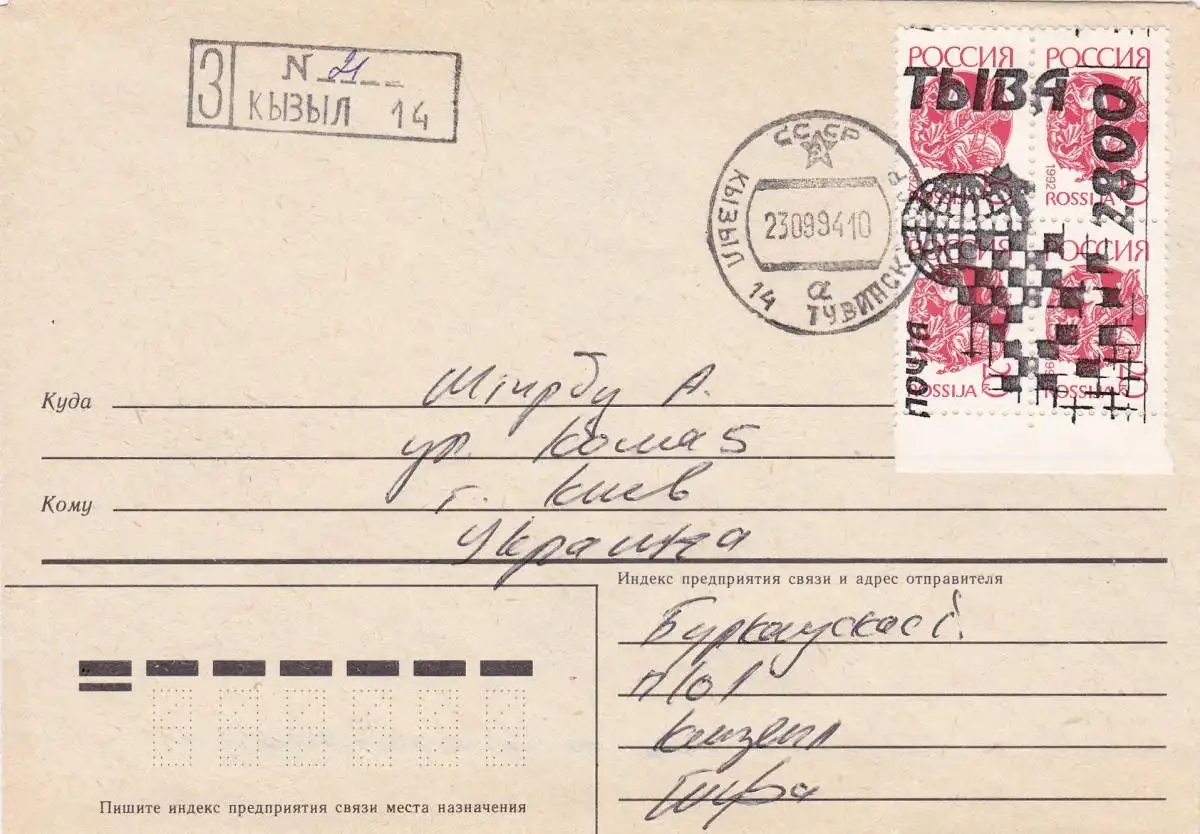 З
N 21
КЫЗЫЛ 14
СССР
КЫЗЫЛ 14
23099410
а
ТУВИНСК
РОССИЯ
РОССИЯ
ТЫВА
2800
1992
ROSSIJA
РОССИЯ
РОССИЯ
ROSSIJA 20
ROSSIJA 20
ПОЧТА
Куда
А.
ул. Кома 5
Кому
г. Киев
Украина
Индекс предприятия связи и адрес отправителя
п/о 1
Кызыл
Тыва
Пишите индекс предприятия связи места назначения